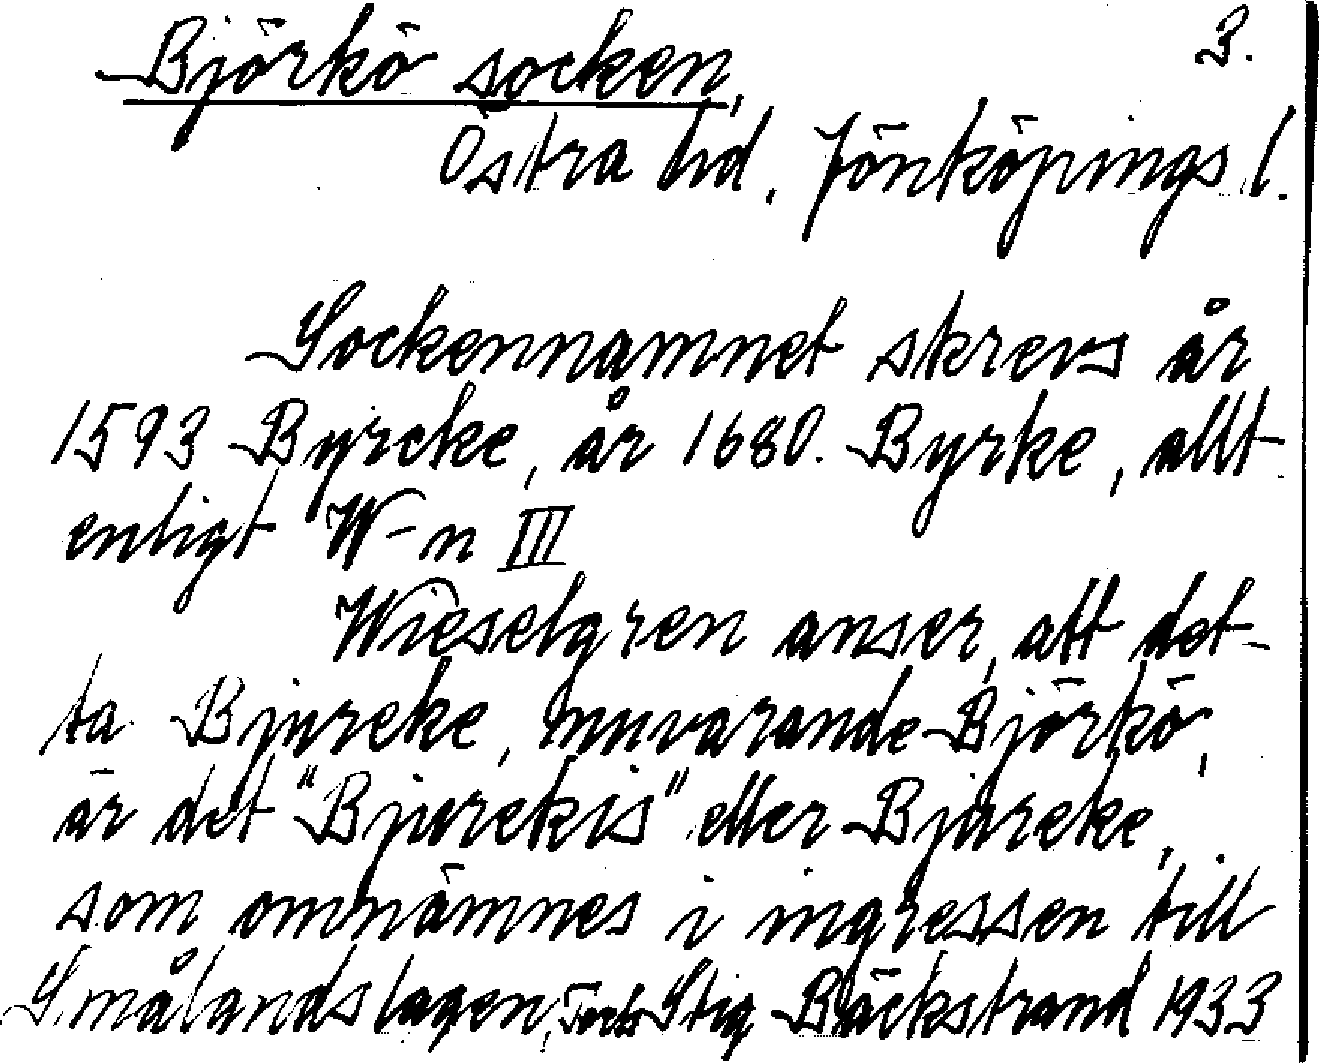 3.
Björkö socken,
Östra hd, Jönköpings l.
Sockennamnet skrevs år
1593 Byrcke, år 1680. Byrke, allt
enligt W-n III
Wieselgren anser, att det-
ta Bjurcke, nuvarande Björkö,
är det "Bjurekis" eller Bjureke,
som omnämnes i ingressen till
Smålandslagen, Stig Bäckstrand 1933